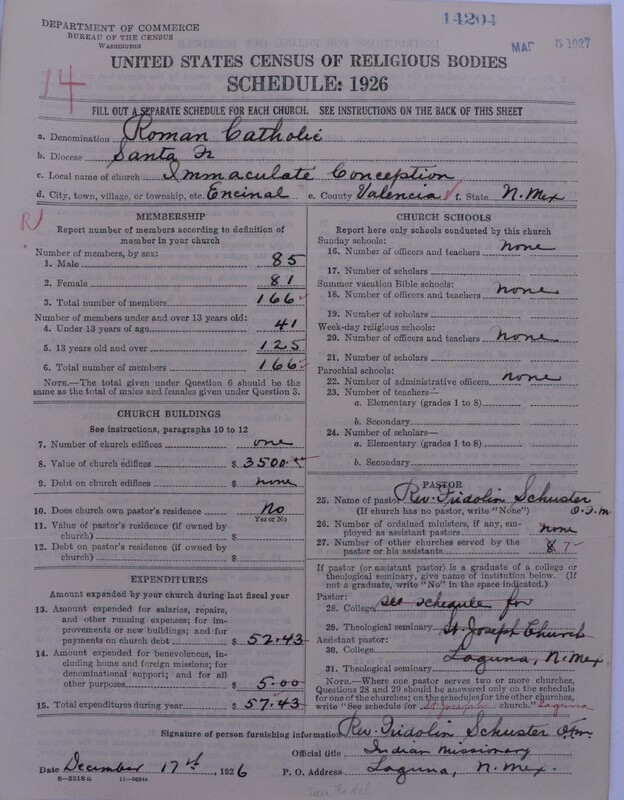 DEPARTMENT OF COMMERCE
BUREAU OF THE CENSUS
WASHINGTON
14204
MAR 5 1927
UNITED STATES CENSUS OF RELIGIOUS BODIES
SCHEDULE: 1926
14
FILL OUT A SEPARATE SCHEDULE FOR EACH CHURCH. SEE INSTRUCTIONS ON THE BACK OF THIS SHEET
a. Denomination Roman Catholic
b. Diocese Santa Fe
c. Local name of church Immaculate Conception
d. City, town, village, or township, etc. Encinal e. County Valencia f. State N. Mex
R
MEMBERSHIP
Report number of members according to definition of
member in your church
Number of members, by sex:
1. Male 85
2. Female 81
3. Total number of members 166
Number of members under and over 13 years old:
4. Under 13 years of age 41
5. 13 years old and over 125
6. Total number of members 166
NOTE.—The total given under Question 6 should be the
same as the total of males and females given under Question 3.
CHURCH BUILDINGS
See instructions, paragraphs 10 to 12
7. Number of church edifices one
8. Value of church edifices $ 3500.00
9. Debt on church edifices $ none
10. Does church own pastor's residence No
Yes or No
11. Value of pastor's residence (if owned by
church) $
12. Debt on pastor's residence (if owned by
church) $
EXPENDITURES
Amount expended by your church during last fiscal year
13. Amount expended for salaries, repairs,
and other running expenses; for im-
provements or new buildings; and for
payments on church debt $ 52.43
14. Amount expended for benevolences, in-
cluding home and foreign missions; for
denominational support; and for all
other purposes $ 5.00
15. Total expenditures during year $ 57.43
CHURCH SCHOOLS
Report here only schools conducted by this church
Sunday schools:
16. Number of officers and teachers none
17. Number of scholars
Summer vacation Bible schools:
18. Number of officers and teachers none
19. Number of scholars
Week-day religious schools:
20. Number of officers and teachers none
21. Number of scholars
Parochial schools:
22. Number of administrative officers none
23. Number of teachers—
a. Elementary (grades 1 to 8)
b. Secondary
24. Number of scholars—
a. Elementary (grades 1 to 8)
b. Secondary
PASTOR
25. Name of pastor Rev. Fridolin Schuster
(If church has no pastor, write "None") O.F.M
26. Number of ordained ministers, if any, em-
ployed as assistant pastors none
27. Number of other churches served by the
pastor or his assistants 8 7
If pastor (or assistant pastor) is a graduate of a college or
theological seminary, give name of institution below. (If
not a graduate, write "No" in the space indicated.)
Pastor:
28. College see schedule for
29. Theological seminary St. Joseph Church
Assistant pastor:
30. College Laguna, N. Mex.
31. Theological seminary
NOTE.—Where one pastor serves two or more churches,
Questions 28 and 29 should be answered only on the schedule
for one of the churches; on the schedules for the other churches,
write "See schedule for St. Josephs church." Laguna
Signature of person furnishing information Rev. Fridolin Schuster O.F.M.
Official title Indian Missionary
Date December 17th, 1926 P. O. Address Laguna, N. Mex.
San Fidel